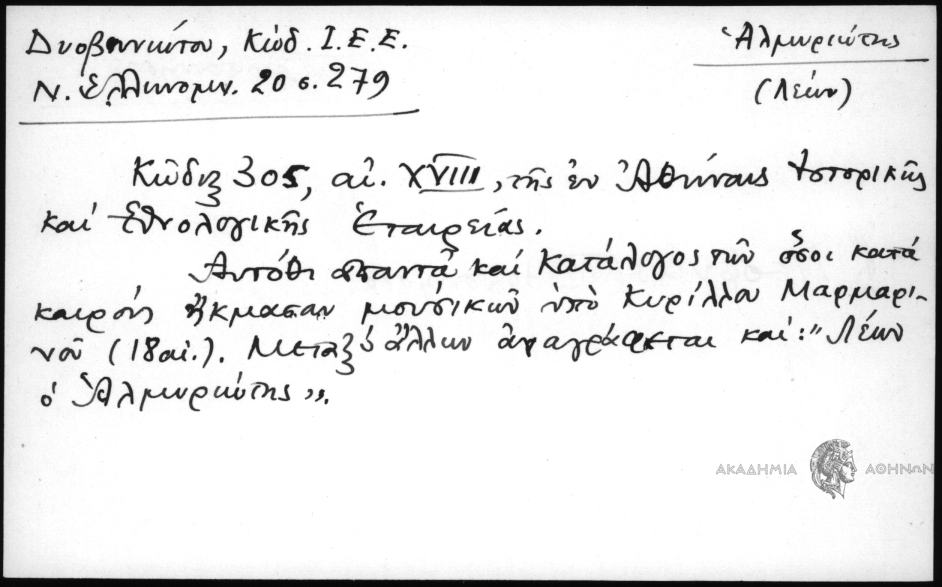 Δυοβουνιώτου, Κώδ. Ι.Ε.Ε.
Ν. Ἑλληνομν. 20 σ. 279
Ἁλμυριώτης
(Λέων)
Κῶδιξ 305, αἰ. XVIII, τῆς ἐν Ἀθήναις Ἱστορικῆς
καὶ Ἐθνολογικῆς Ἑταιρείας.
Αὐτόθι ἀπαντᾶ καὶ κατάλογος τῶν ὅσοι κατὰ
καιροὺς ἤκμασαν μουσικῶν ὑπὸ Κυρίλλου Μαρμαρι-
νοῦ (18 αἰ.). Μεταξὺ ἄλλων ἀναγράφεται καί: "Λέων
ὁ Ἁλμυριώτης".
ΑΚΑΔΗΜΙΑ ΑΘΗΝΩΝ